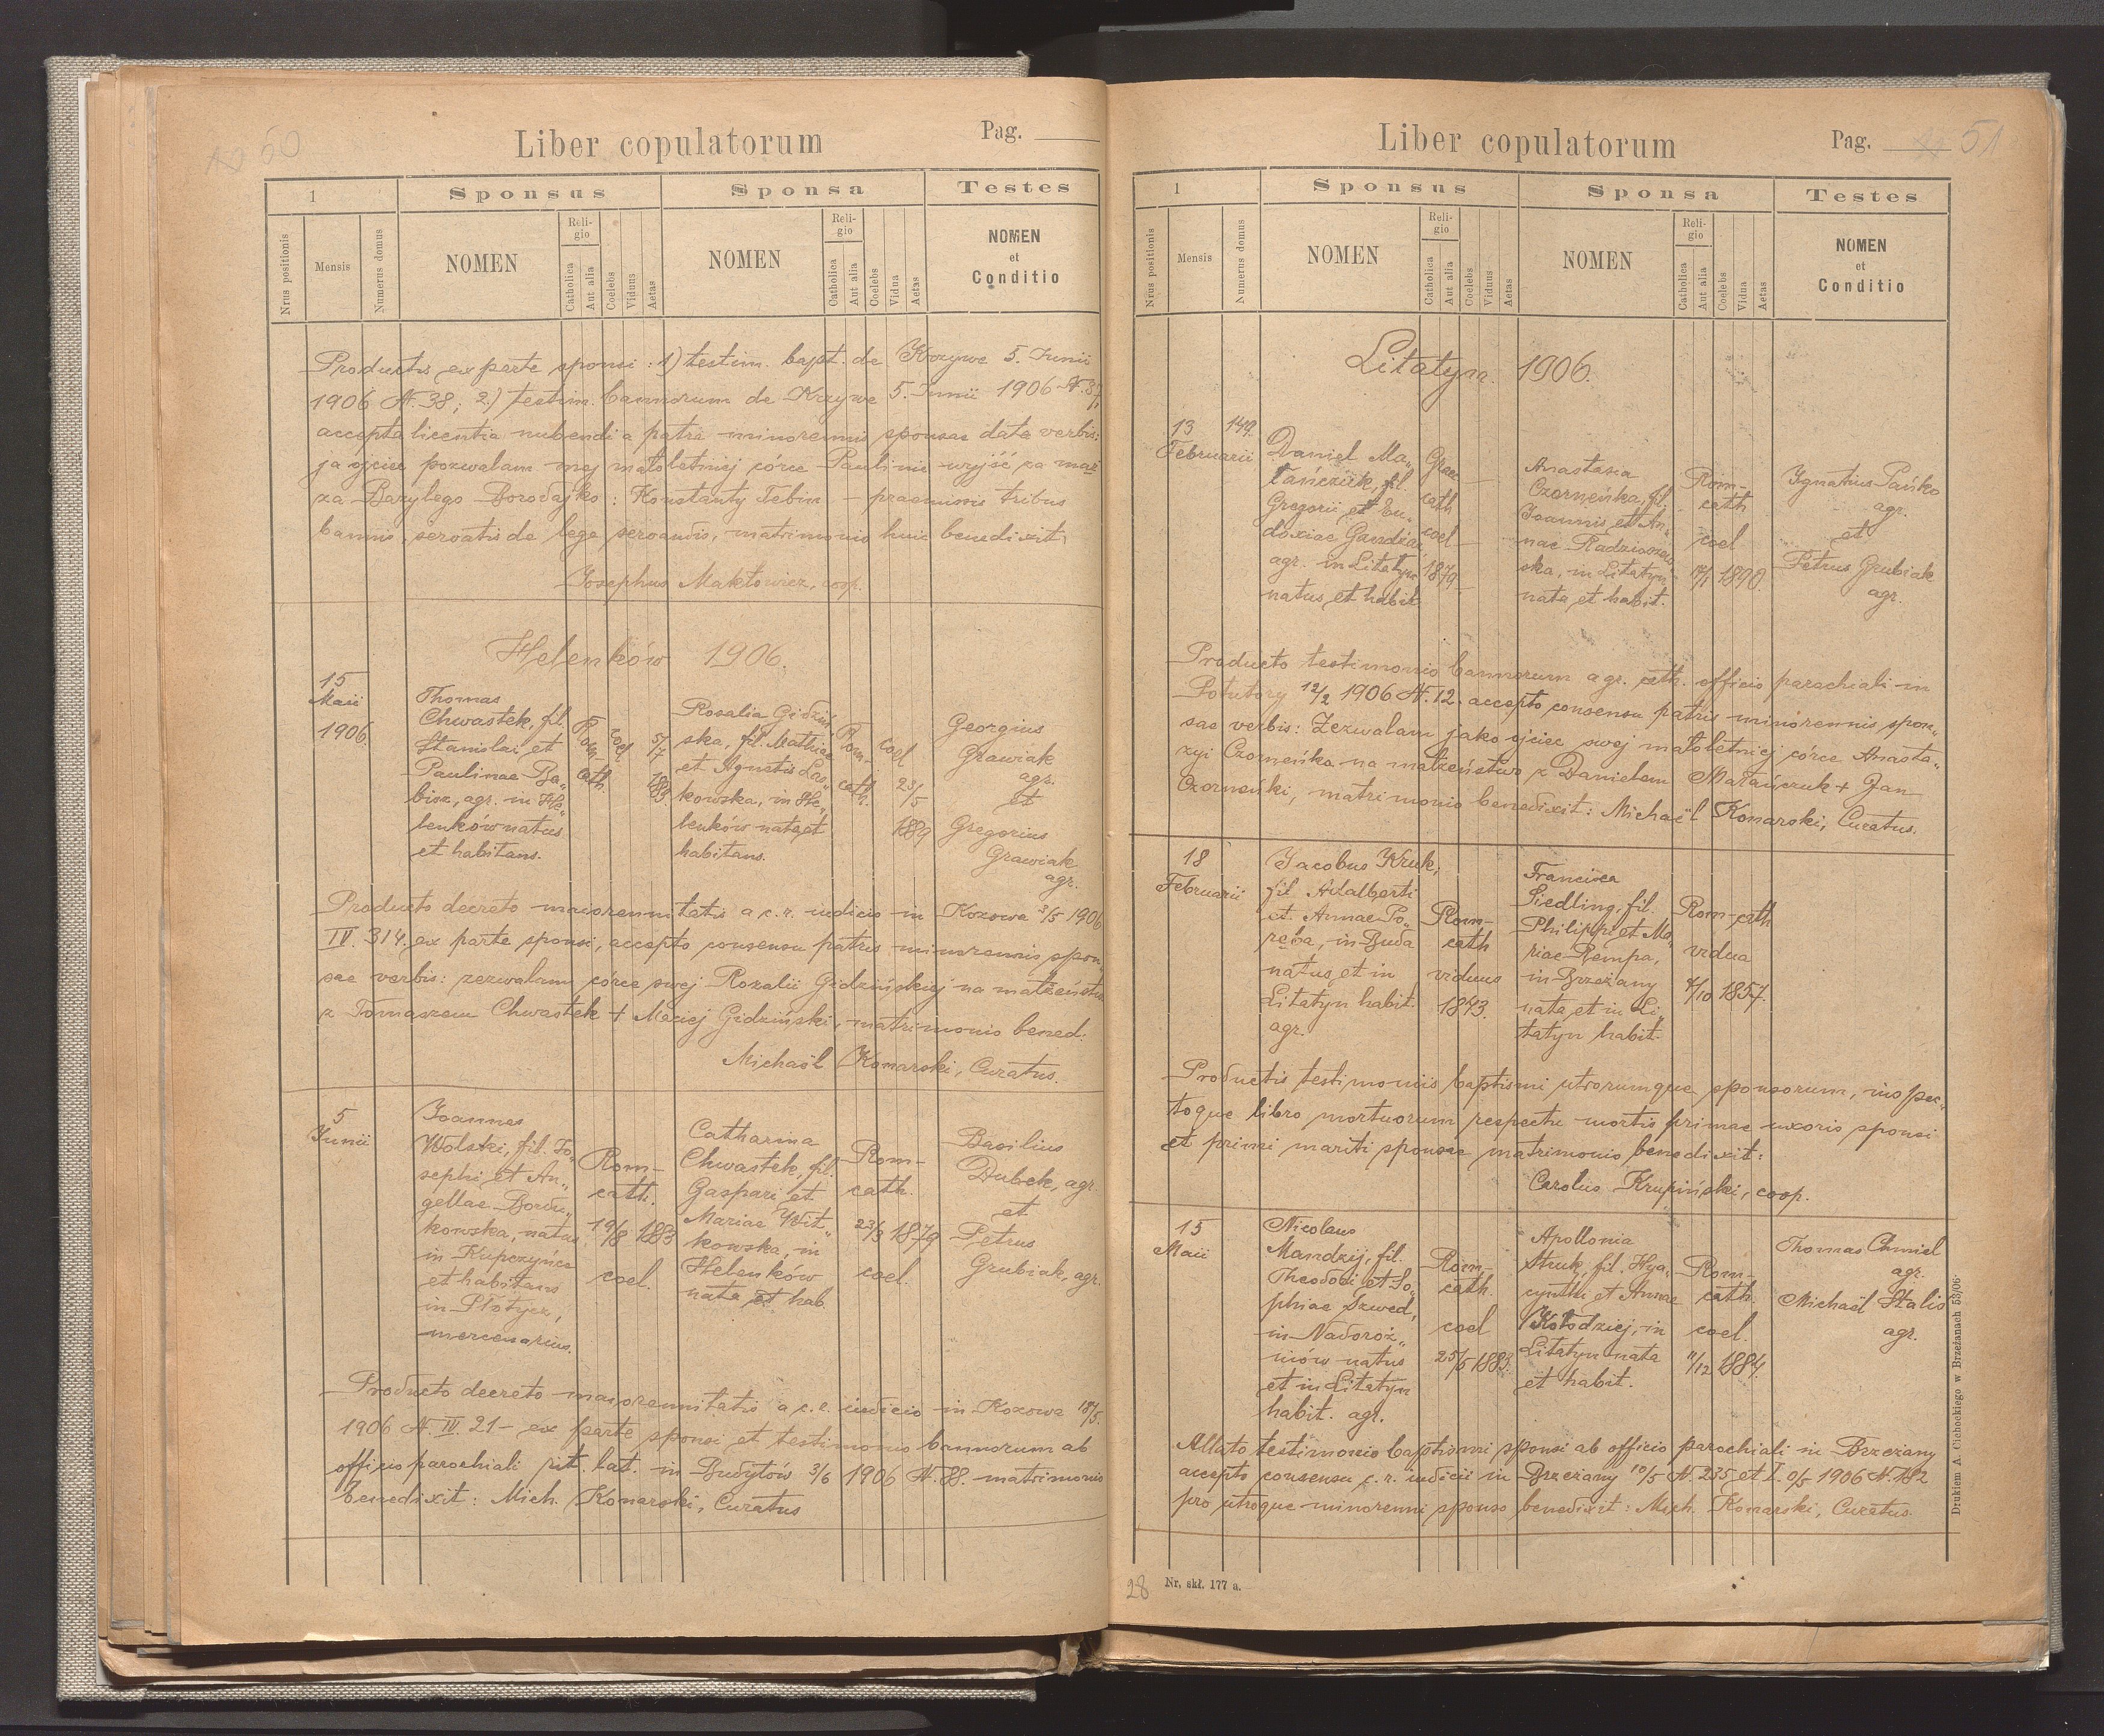 50
Liber copulatorum
Pag.
1
Sponsus
Sponsa
Testes
Nrus positionis
Mensis
Numerus domus
NOMEN
Religio
Catholica
Aut alia
Coelebs
Viduus
Aetas
NOMEN
Religio
Catholica
Aut alia
Coelebs
Vidua
Aetas
NOMEN
et
Conditio
Productis ex parte sponsi: 1) testim. bapt. de Krzywe 5. Junii
1906 N. 38; 2.) testim. bannorum de Krzywe 5. Junii 1906 N. 37,
accepta licentia nubendi a patre minorennis sponsae data verbis:
ja ojciec pozwalam mej małoletniej córce Paulinie wyjść za mąż
za Bazylego Borodajko: Konstanty Tebin - praemissis tribus
bannis, servatis de lege servandis, matrimonio huic benedixit:
Josephus Maktowicz, coop.
Helenków 1906.
15
Maii
1906.
Thomas
Chwastek, fil.
Stanislai et
Paulinae Ba„
bisz, agr. in He„
lenków natus
et habitans.
Rom-
cath.
coel
5/7
188
Rosalia Gidziń„
ska, fil. Mathiae
et Agnetis Las„
kowska, in He„
lenków nata et
habitans.
Rom-
cath.
coel
23/5
1889
Georgius
Grawiak
agr.
et
Gregorius
Grawiak
agr.
Producto decreto maiorennitatis a c. r. iudicio in Kozowa 3/5 1906
IV. 314. ex parte sponsi, accepto consensu patris minorennis spon„
sae verbis: zezwalam córce swej Rozalii Gidzińskiej na małżeństwo
z Tomaszem Chwastek + Maciej Gidziński, matrimonio bened:
Michaël Konarski, Curatus.
5
Junii
Joannes
Wolski, fil. Jo„
sephi et An„
gellae Bordu„
kowska, natus
in Kupczyńce
et habitans
in Płotycz,
mercenarius.
Rom-
cath.
19/8 1883
coel.
Catharina
Chwastek, fil.
Gaspari et
Mariae Wit„
kowska, in
Helenków
nata et hab.
Rom-
cath.
23/3 1879
coel.
Basilius
Dubek, agr.
et
Petrus
Grubiak, agr.
Producto decreto maiorennitatis a c. r. iudicio in Kozowa 18/5.
1906 N. IV. 21 - ex parte sponsi et testimonio bannorum ab
officio parochiali rit. lat. in Budyłów 3/6 1906 N. 88. matrimonio
benedixit: Mich. Konarski, Curatus
Liber copulatorum
Pag. 51
1
Sponsus
Sponsa
Testes
Nrus positionis
Mensis
Numerus domus
NOMEN
Religio
Catholica
Aut alia
Coelebs
Viduus
Aetas
NOMEN
Religio
Catholica
Aut alia
Coelebs
Vidua
Aetas
NOMEN
et
Conditio
Litatyn. 1906.
13
Februarii
149.
Daniel Ma„
tańczuk, fil.
Gregorii et Eu„
doxiae Gandziar,
agr. in Litatyn
natus et habit.
Graec
cath
coel
1879.
Anastasia
Czorneńka, fil.
Joannis et An„
nae Radziszew„
ska, in Litatyn
nata et habit.
Rom-
cath
coel
17/1 1890.
Ignatius Pańko
agr.
et
Petrus Grubiak
agr.
Producto testimonio bannorum a gr. cath. officio parochiali in
Potutory 12/2 1906 N. 12. accepto consensu patris minorennis spon„
sae verbis: Zezwalam jako ojciec swej małoletniej córce Anasta„
zyi Czorneńka na małżeństwo z Danielem Matańczuk + Jan
Czorneński, matrimonio benedixit: Michaël Konarski, Curatus.
18
Februarii
Jacobus Kruk,
fil. Adalberti
et Annae Po„
ręba, in Buda
natus et in
Litatyn habit.
agr.
Rom-
cath
viduus
1843.
Francisca
Siedling, fil.
Philippi et Ma„
riae Rempa,
in Brzeżany
nata et in Li„
tatyn habit.
Rom-cath
vidua
4/10 1857.
Productis testimoniis baptismi utrorumque sponsorum, inspec„
toque libro mortuorum respectu mortis primae uxoris sponsi
et primi mariti sponsae matrimonio benedixit:
Carolus Krupiński, coop.
15
Maii
Nicolaus
Mandzij, fil.
Theodosi et So„
phiae Szwed,
in Nadoroż„
niów natus
et in Litatyn
habit. agr.
Rom-
cath.
coel
25/5 1883.
Apollonia
Struk, fil. Hya„
cynthi et Annae
Kołodziej, in
Litatyn nata
et habit.
Rom-
cath.
coel.
11/12 1884.
Thomas Chmiel
agr.
Michaël Stalis
agr.
Allato testimonio baptismi sponsi ab officio parochiali in Brzeżany
accepto consensu c. r. iudicii in Brzeżany 10/5 N. 235 et I. 1906 N. 182
pro utroque minorenni sponso benedixit: Mich. Konarski, Curatus.
Drukiem A. Cichockiego w Brzeżanach 53/06.
28
Nr. skł. 177 a.